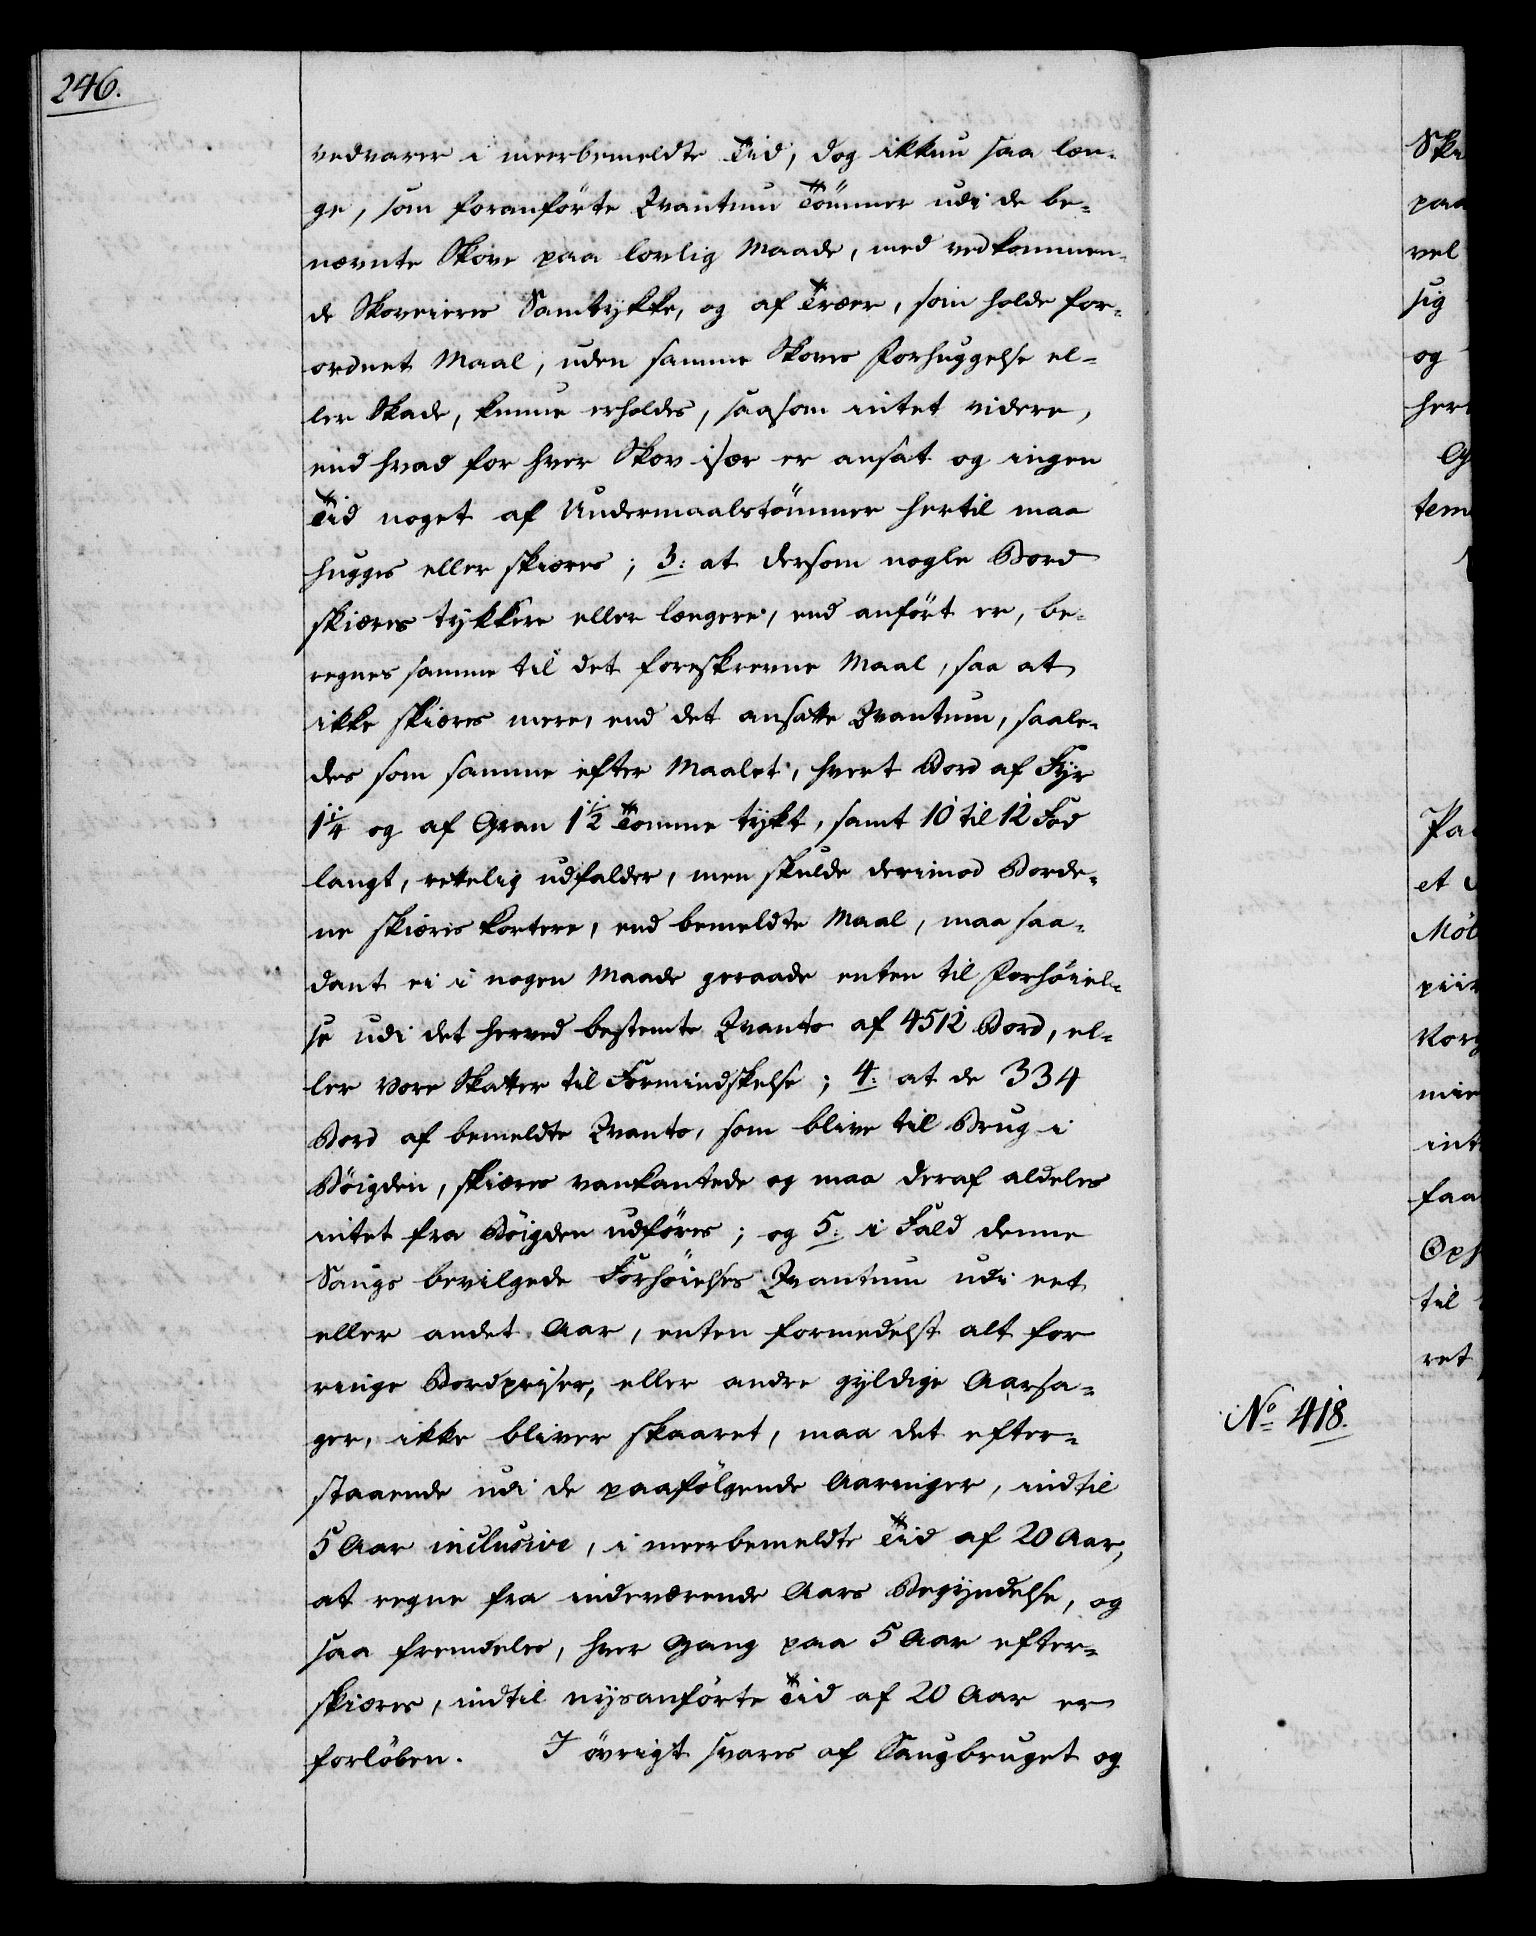 246.
vedvarer i meerbemeldte Tid, dog ikkun saa læn-
ge, som foranförte Qvantum Tömmer udi de be-
nævnte Skove paa lovlig Maade, med vedkommen-
de Skoveieres Samtykke, og af Træer, som holde for-
ordnet Maal, uden samme Skoves Forhuggelse el-
ler Skade, kunne erholdes, saasom intet videre,
end hvad for hver Skov især er ansat og ingen
Tid noget af Undermaalstömmer hertil maa
hugges eller skiæres; 3: at dersom nogle Bord
skiæres tykkere eller længere, end anfört er, be-
regnes samme til det foreskrevne Maal, saa at
ikke skiæres mere, end det ansatte Qvantum, saale-
des som samme efter Maalet, hvert Bord af Fyr
1¼ og af Gran 1½ Tomme tykt, samt 10 til 12 Fod
langt, rettelig udfalder, men skulde derimod Borde-
ne skiæres kortere, end bemeldte Maal, maa saa-
dant ei i nogen Maade geraade enten til Forhöiel-
se udi det herved bestemte Qvanto af 4512 Bord, el-
ler vore Skatter til Formindskelse; 4: at de 334
Bord af bemeldte Qvanto, som blive til Brug i
Böigden, skiæres vankantede og maa deraf aldeles
intet fra Böigden udföres; og 5: i Fald denne
Saugs bevilgede Forhöielses Qvantum udi eet
eller andet Aar, enten formedelst alt for
ringe Bordpriser, eller andre gyldige Aarsa-
ger, ikke bliver skaaret, maa det efter-
staaende udi de paafölgende Aaringer, indtil
5 Aar inclusive, i meerbemeldte Tid af 20 Aar,
at regne fra indeværende Aars Begyndelse, og
saa fremdeles, hver Gang paa 5 Aar efter-
skiæres, indtil nysanförte Tid af 20 Aar er
forlöben. I övrigt svares af Saugbruget og
No 418.
paa
vel
sig
og
et
til
ret